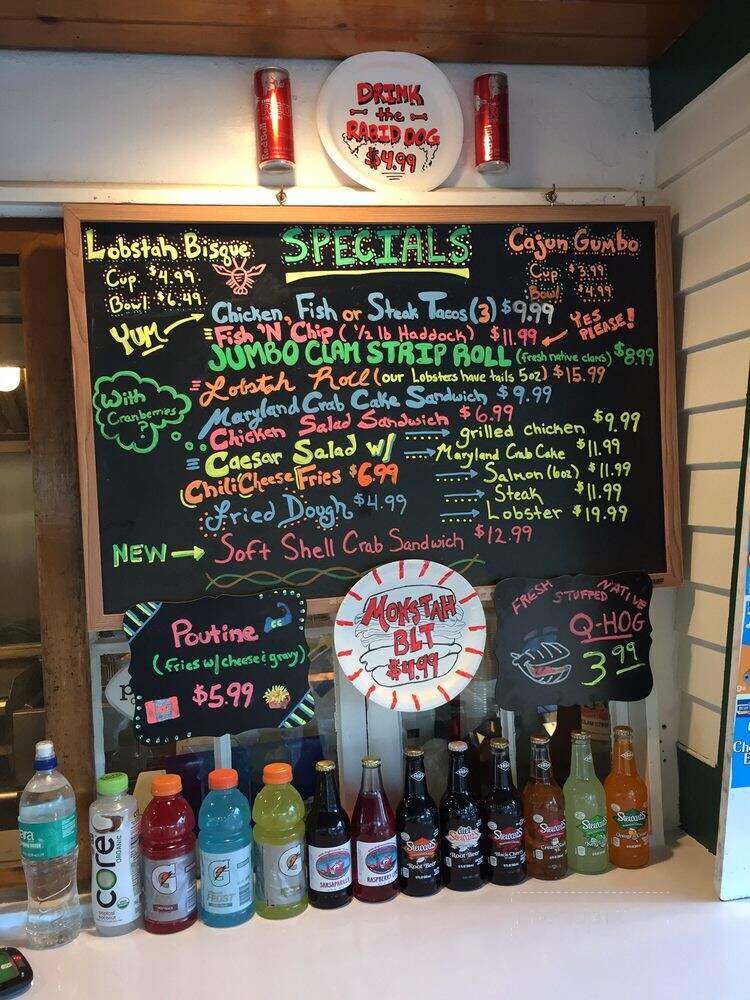 DRINK
the
RABID DOG
$4.99
Red Bull
SPECIALS
Lobstah Bisque
Cup $4.99
Bowl $6.49
Cajun Gumbo
Cup $3.99
Bowl $4.99
YUM
Chicken, Fish or Steak Tacos (3) $9.99
YES PLEASE!
Fish 'N Chip (1/2 lb Haddock) $11.99
JUMBO CLAM STRIP ROLL (fresh native clams) $8.99
Lobstah Roll (our Lobsters have tails 5oz) $15.99
Maryland Crab Cake Sandwich $9.99
With
Cranberries
?
Chicken Salad Sandwich $6.99
Caesar Salad w/ grilled chicken $9.99
Maryland Crab Cake $11.99
Salmon (6oz) $11.99
Steak $11.99
Lobster $19.99
Chili Cheese Fries $6.99
Fried Dough $4.99
NEW
Soft Shell Crab Sandwich $12.99
Poutine
(fries w/ cheese & gravy)
$5.99
MONSTAH
BLT
$4.99
FRESH NATIVE
STUFFED
Q-HOG
3.99
core
ORGANIC
G
G
FROST
G
SARSAPARILLA
RASPBERRY
Stewart's
Root Beer
Diet
Stewart's
Root Beer
Stewart's
Black Cherry
Stewart's
Stewart's
Stewart's